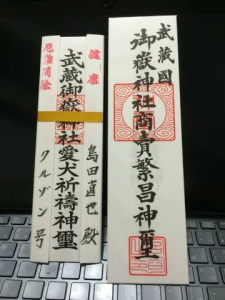 武蔵國
御嶽神社商売繁昌神璽
健康
武蔵御嶽神社愛犬祈祷神璽
厄難消除
島田直也殿
クルゾン号